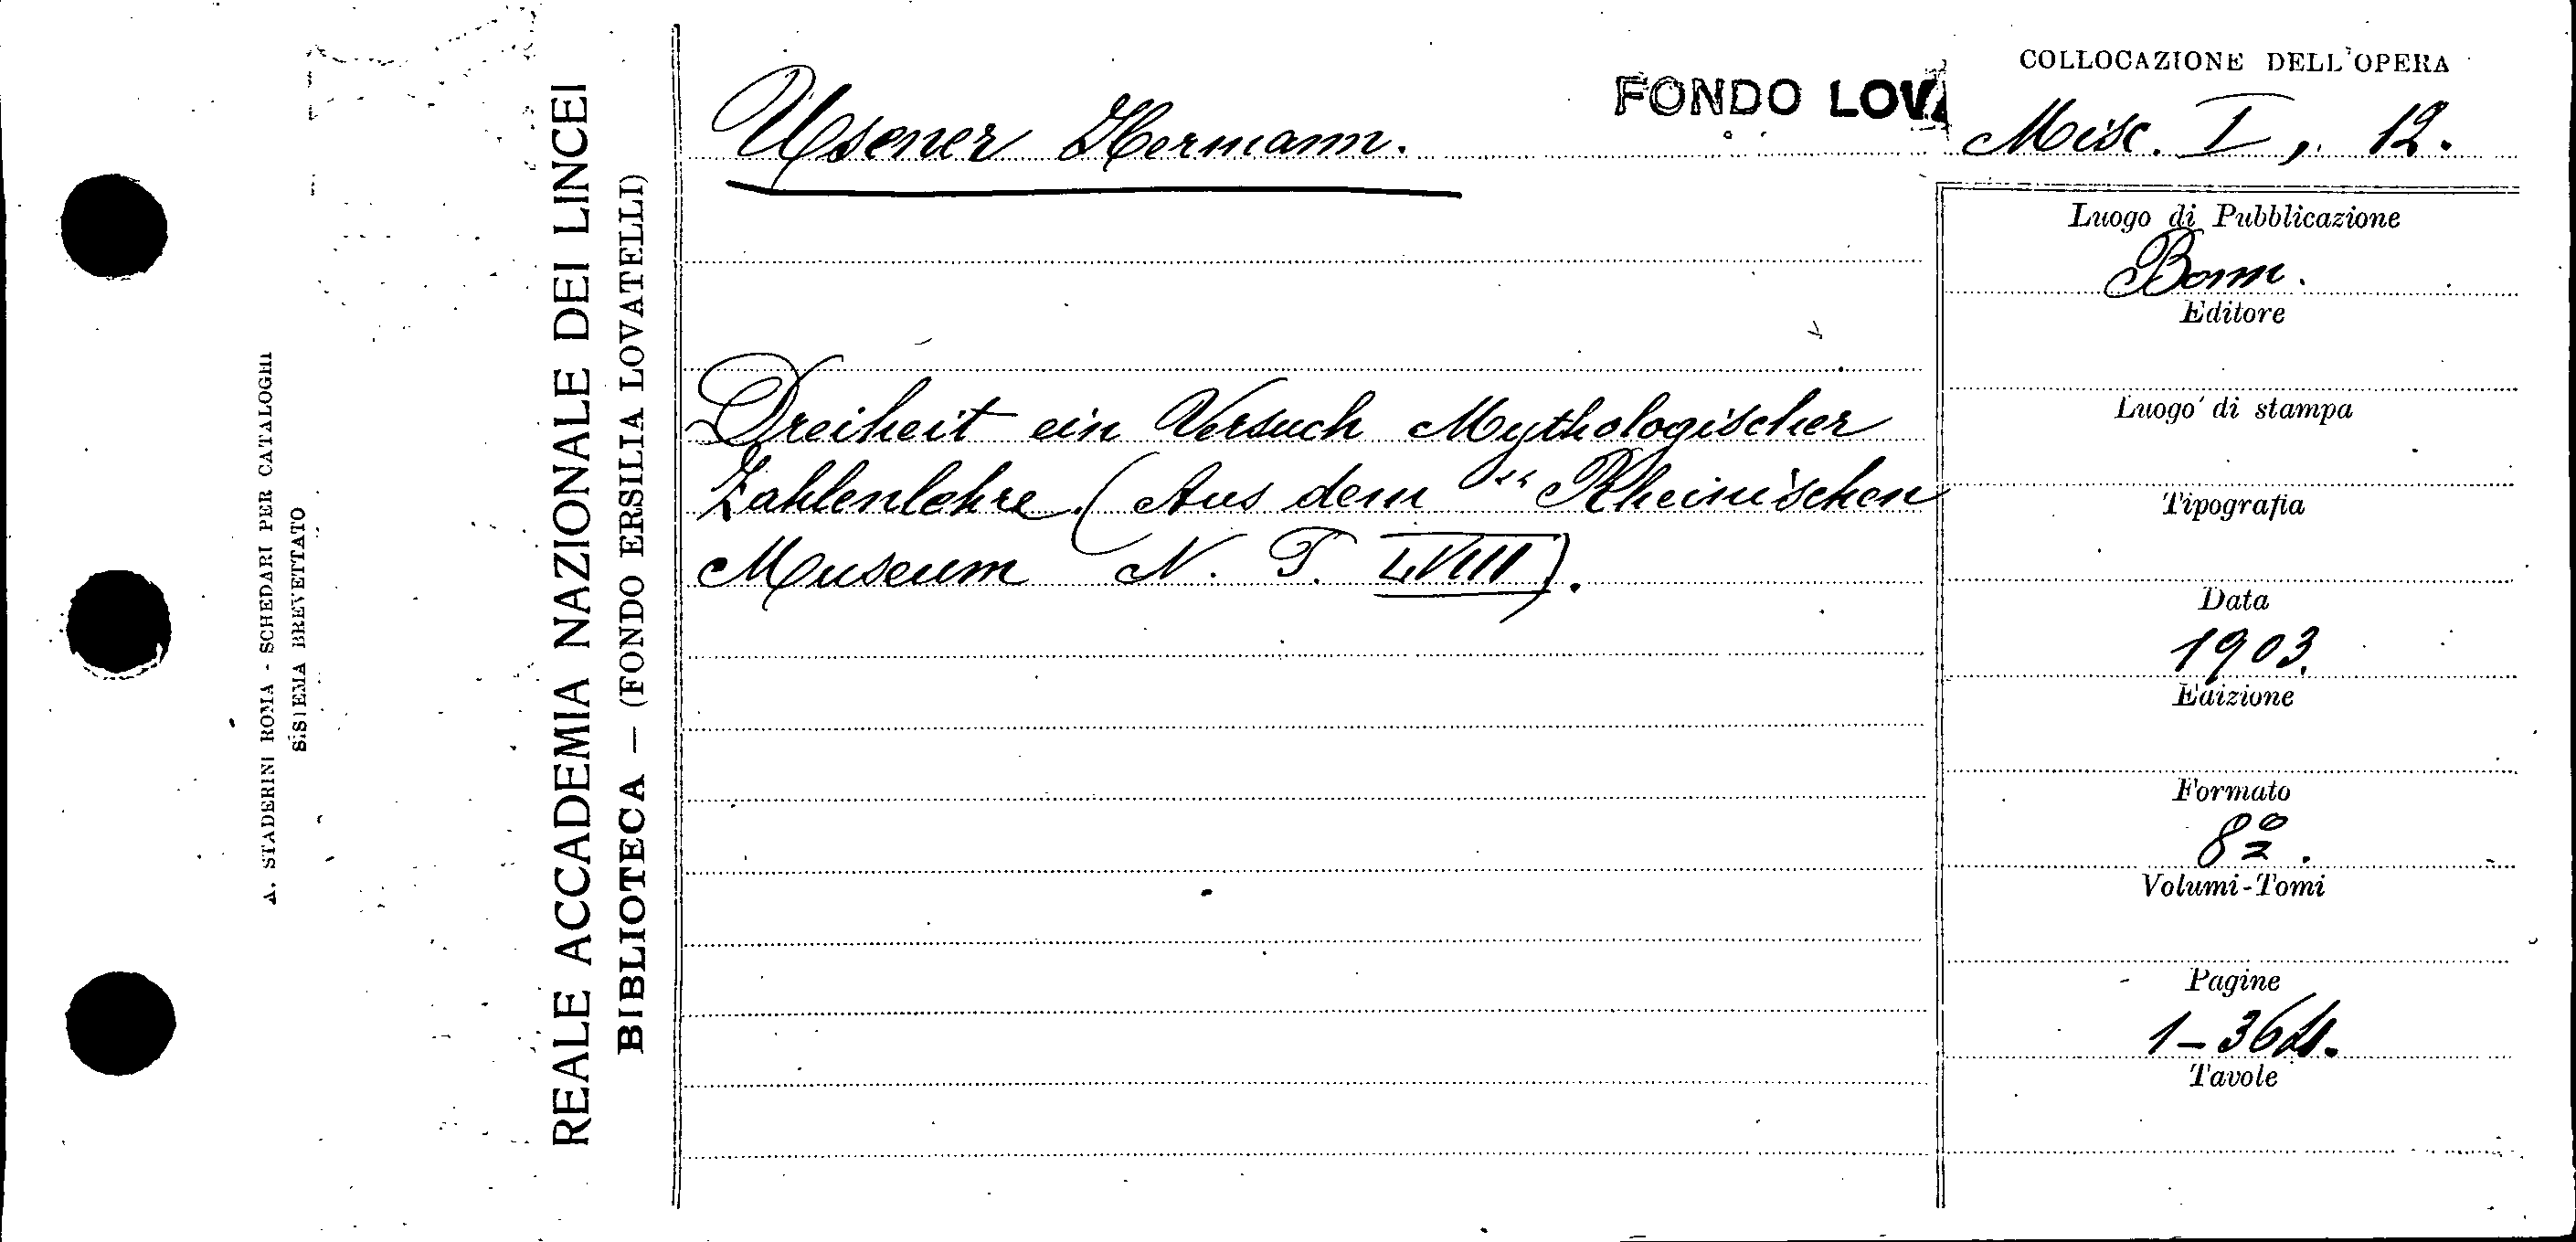 A. STADERINI ROMA - SCHEDARI PER CATALOGHI
SISTEMA BREVETTATO
REALE ACCADEMIA NAZIONALE DEI LINCEI
BIBLIOTECA — (FONDO ERSILIA LOVATELLI)
Usener Hermann.
FONDO LOVA
Dreiheit ein Versuch Mythologischer
Zahlenlehre. (Aus dem " Rheinischen
Museum N. F. LVIII).
COLLOCAZIONE DELL'OPERA
Misc. I, 12.
Luogo di Pubblicazione
Bonn.
Editore
Luogo di stampa
Tipografia
Data
1903.
Edizione
Formato
8º.
Volumi-Tomi
Pagine
Tavole